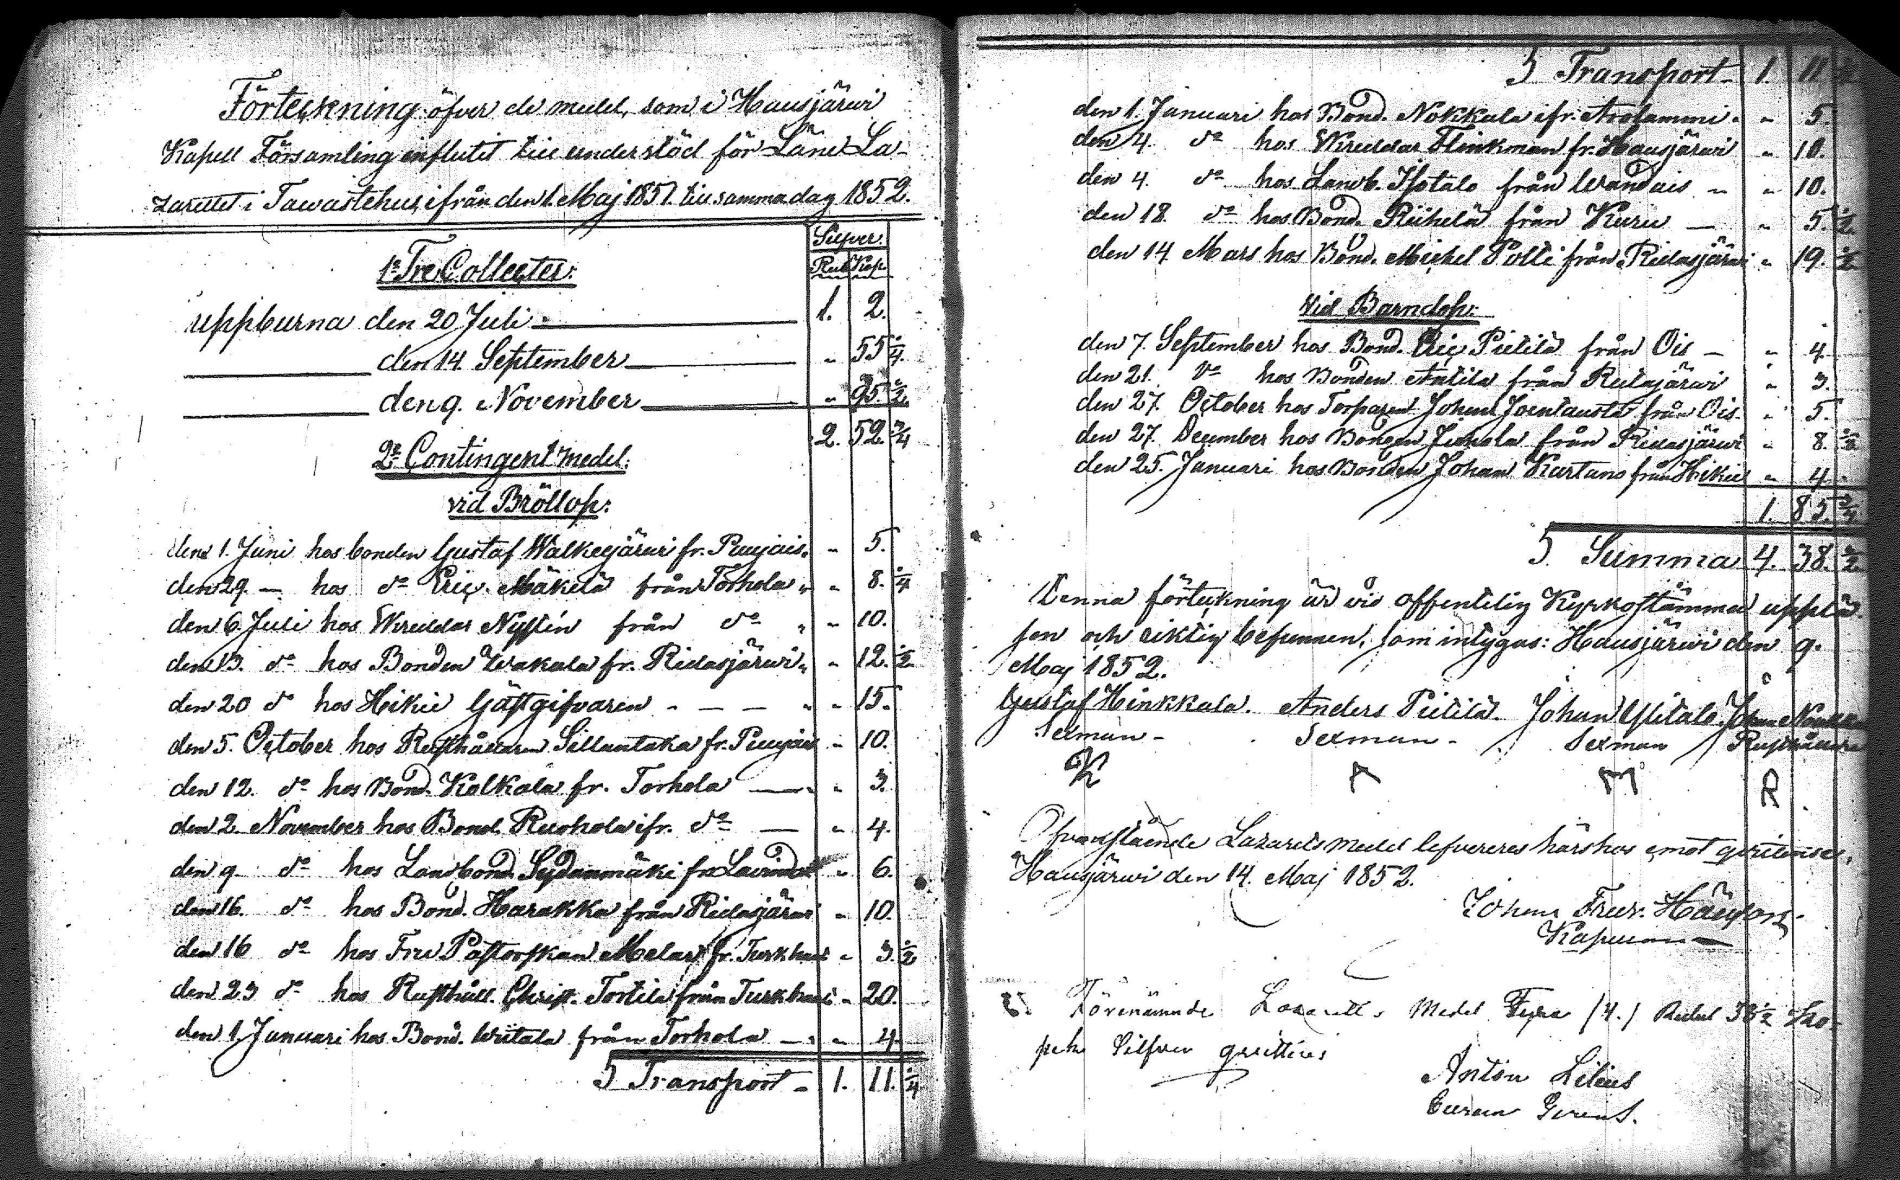 Förteckning öfver de medel, som i Hausjärwi
Kapell Församling influtit till understöd för Läne La-
zarettet i Tawastehus, ifrån den 1. Maj 1851. till samma dag 1852.
Silfver.
Rub. Kop.
1o Tre Collecter:
uppburna den 20 Juli 1. 2.
den 14. September " 55 1/4
den 9. November " 95 1/2
2. 52. 3/4
2o Contingent medel:
vid Bröllop:
den 1. Juni hos bonden Gustaf Walkejärwi fr. Puujais " 5.
den 29. — hos do Eric Mäkelä från Torhola " 8. 1/4
den 6 Juli hos Nystén från do " 10.
den 13. do hos Bonden Wakala fr. Ridasjärwi " 12. 1/2
den 20 do hos Hikiä Gästgifvaren " 15.
den 5. October hos Rusthållaren Sillantaka fr. Puujais " 10.
den 12. do hos Bond. Kolkala fr. Torhola " 3.
den 2. November hos Bond. Ruohola ifr. do " 4.
den 9 do hos Landbond. Sydänmäki fr. " 6.
den 16. do hos Bond. Harakka från Ridasjärwi " 10.
den 16 do hos Fru Pastorskan Melart fr. Turkhaut " 3 1/2
den 23 do hos Rusthåll. Christ. Tortila från Turkhaut " 20.
den 1. Januari hos Bond. Uutala från Torhola " 4.
Transport 1. 11. 1/4
Transport 1. 11.
den 1. Januari hos Bond. Nokkala ifr. Arolammi " 5.
den 4. do hos Flinkman fr. Hausjärwi " 10.
den 4. do hos Landb. Isotalo från " 10.
den 18. do hos Bond. Riihelä från Kuru " 5. 1/2
den 14 Mars hos Bond. Michel Polli från Ridasjärwi " 19. 1/2
Vid Barndop:
den 7. September hos Bond. Eric Pietilä från Ois " 4
den 21. do hos Bonden Antila från Ridasjärwi " 3.
den 27. October hos Torparen Johan från Ois " 5.
den 27. December hos Bonden Juhola från Ridasjärwi " 8. 1/2
den 25. Januari hos Bonden Johan från Hikiä " 4
1. 85. 3/4
Summa 4. 38. 1/2
Denna förteckning är vid offentelig Kyrkostämma upplä-
sen och riktig befunnen, som intygas: Hausjärwi den 9.
Maj 1852.
Gustaf Hinkkala. Anders Pietilä. Johan Ylitalo. Johan
Sexman Sexman Sexman Rusthållare
Ofvanstående Lazaretts medel lefvereres härhos emot qvittense.
Hausjärwi den 14. Maj 1852.
Johan Fredr.
Kapellan
Förenämnde Lazaretts Medel Fyra (4.) Rubel 38 1/2 Ko-
pek Silfver qvitteras
Anton Lilius